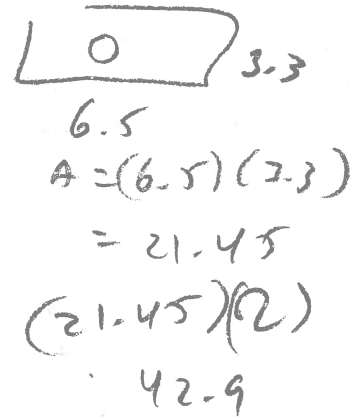 3.3
6.5
A = (6.5)(3.3)
= 21.45
(21.45)(2)
42.9